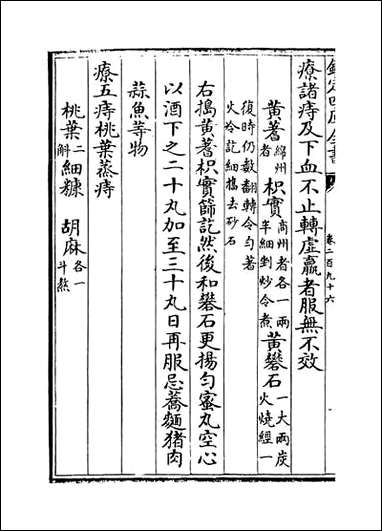 欽定四庫全書
卷二百九十六
療諸痔及下血不止轉虛羸者服無不效
黃蓍綿州者枳實商州者各一兩半細剉炒令煮黃礬石一大兩炭火燒經一
復時仍數翻轉令勻著火冷訖細擣去砂石
右搗黃蓍枳實篩訖然後和礬石更揚勻蜜丸空心
以酒下之二十丸加至三十丸日再服忌蕎麵猪肉
蒜魚等物
療五痔桃葉蒸痔
桃葉二斛細糠 胡麻各一斗熬